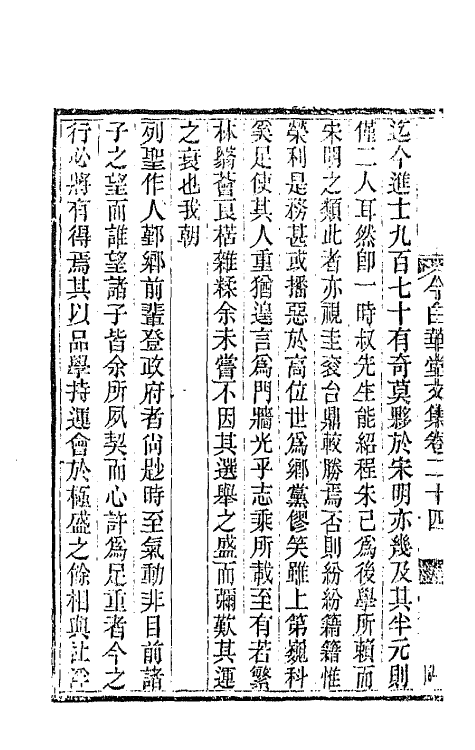 迄今進士九百七十有奇莫夥於宋明亦幾及其半元則
僅二人耳然卽一時叔先生能紹程朱已爲後學所賴而
宋明之類此者亦視圭袞台鼎較勝焉否則紛紛籍籍惟
榮利是務甚或播惡於高位世爲鄉黨僇笑雖上第巍科
奚足使其人重猶遑言爲門牆光乎志乘所載至有若繁
林翳薈良楛雜糅余未嘗不因其選舉之盛而彌歎其運
之衰也我朝
列聖作人鄞鄉前輩登政府者尙尟時至氣動非目前諸
子之望而誰望諸子皆余所夙契而心許爲足重者今之
行必將有得焉其以品學持運會於極盛之餘相與
今白華堂文集卷二十四
四